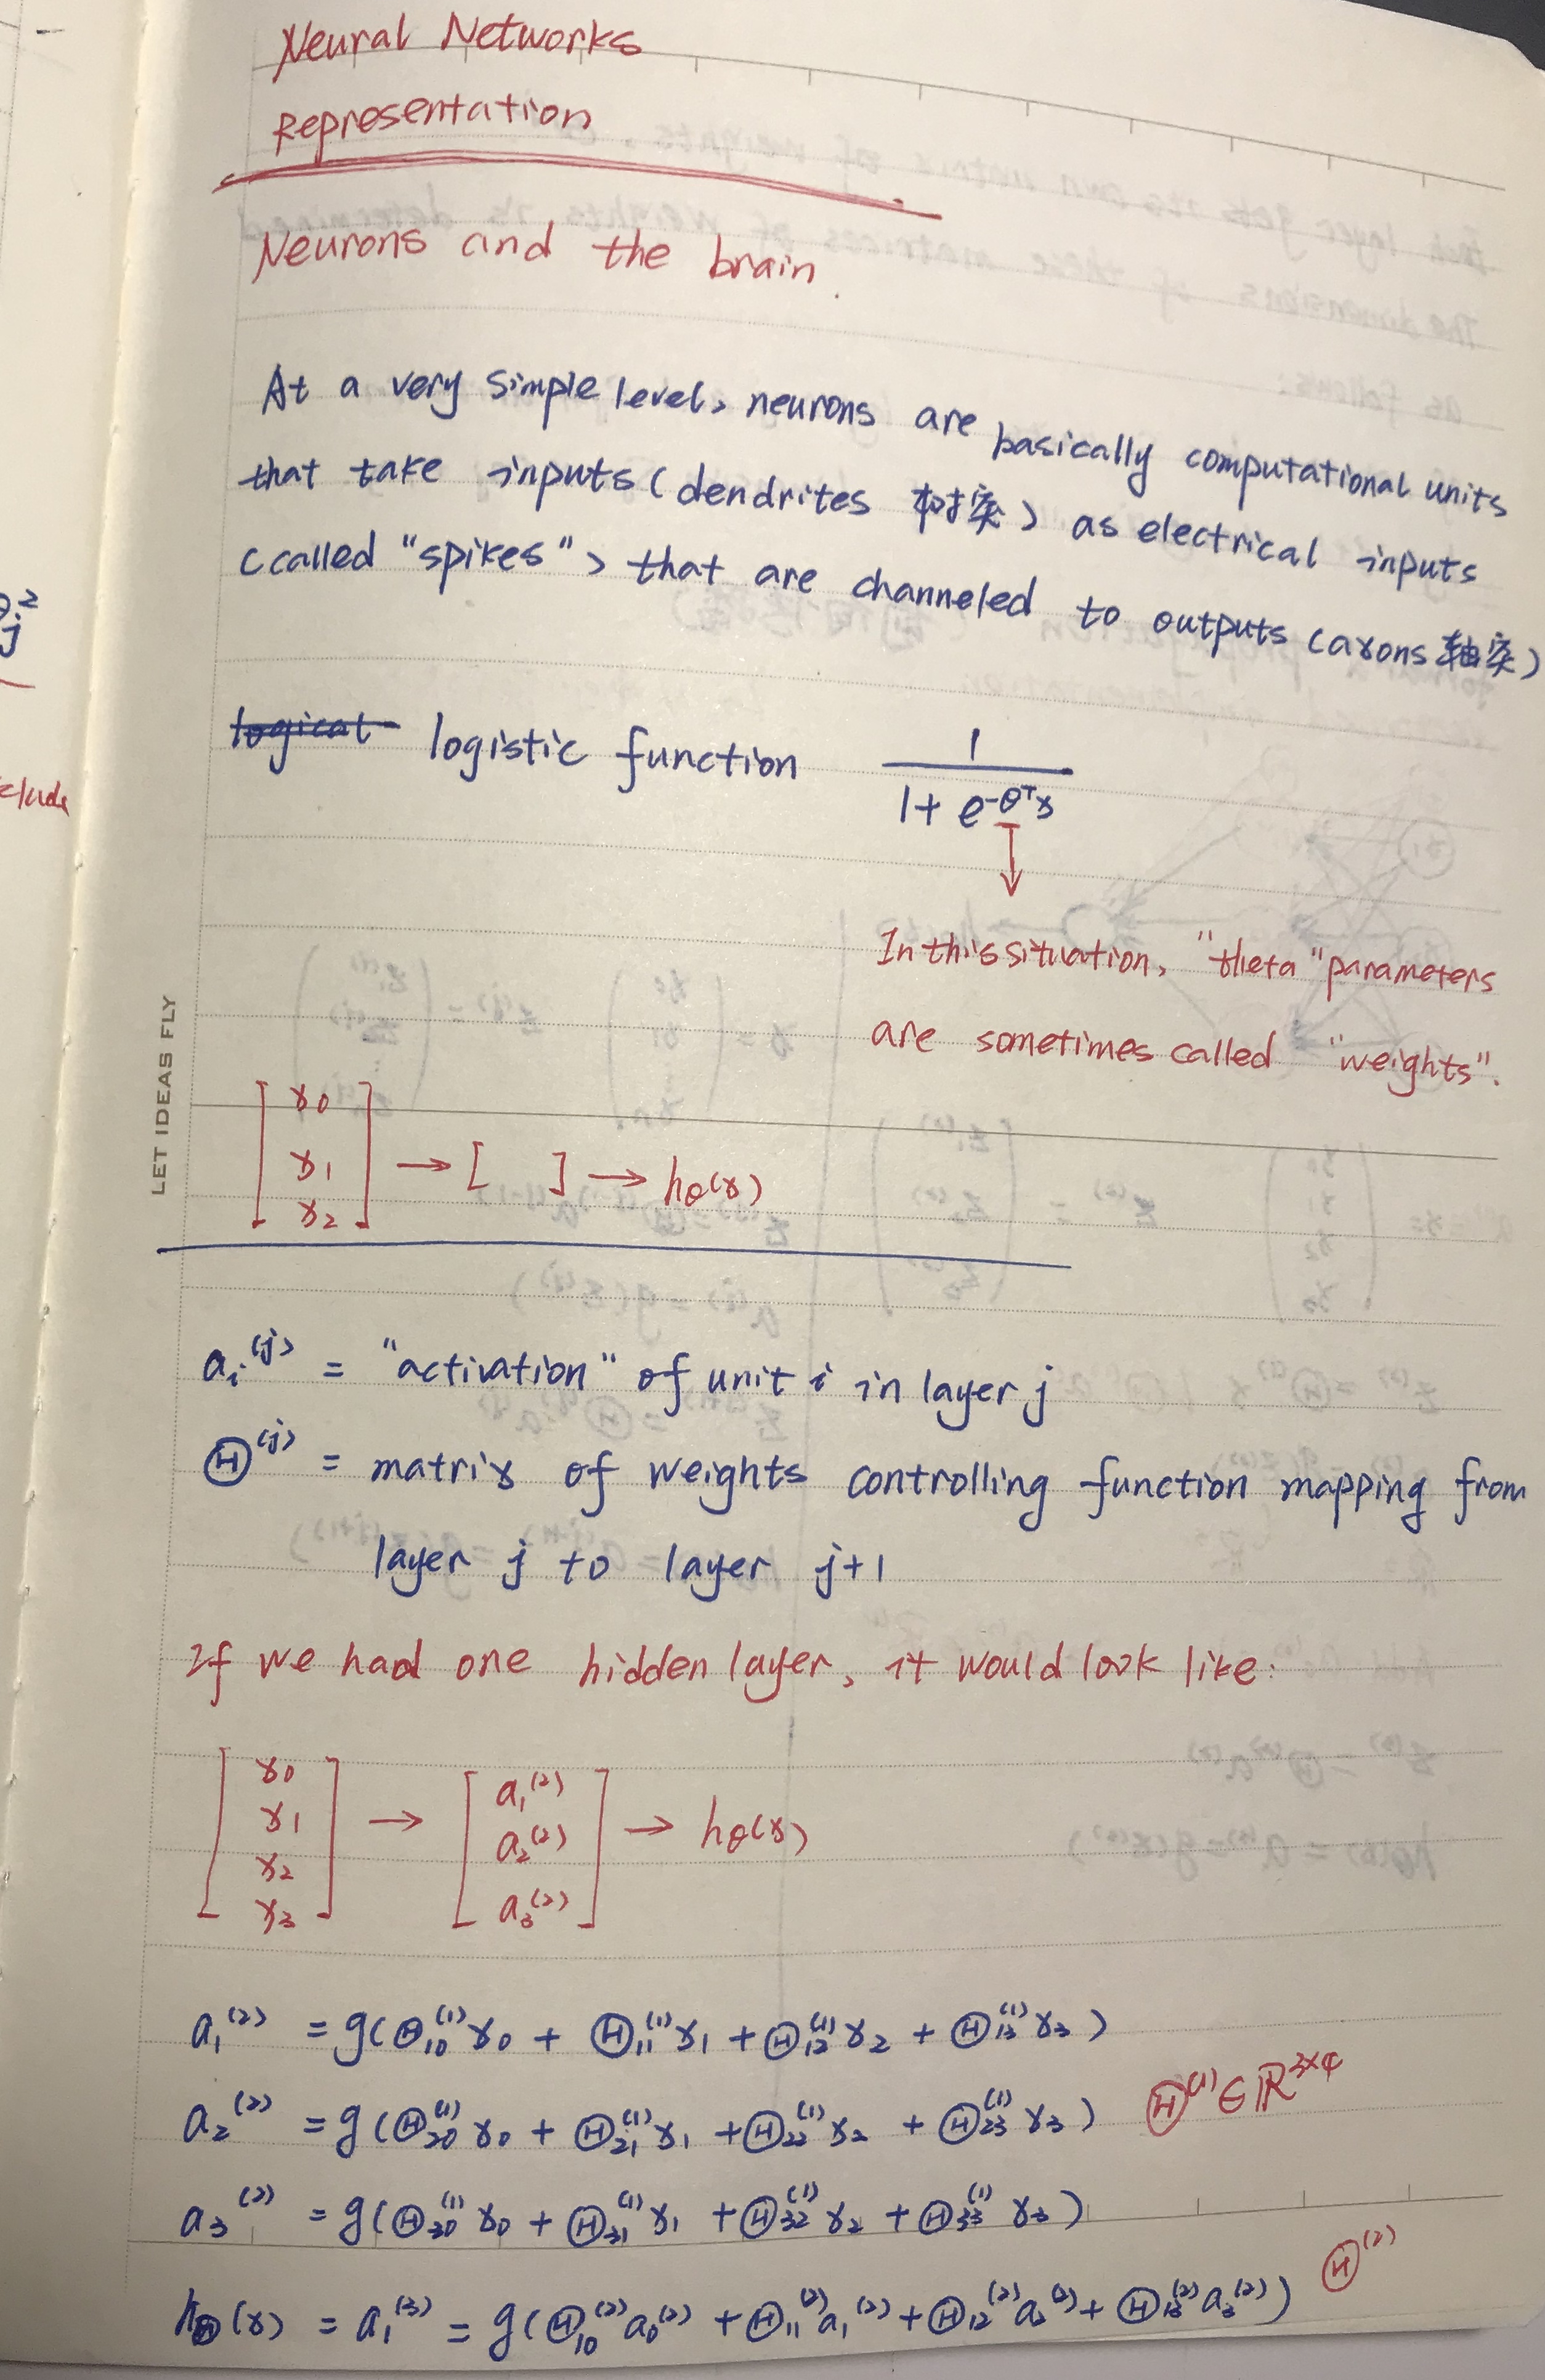 Neural Networks
Representation
Neurons and the brain.
At a very simple level, neurons are basically computational units
that take inputs (dendrites 树突) as electrical inputs
(called "spikes") that are channeled to outputs (axons 轴突)
logical logistic function 1 / (1 + e^(-θᵀx))
In this situation, "theta" parameters
are sometimes called "weights".
[x₀ x₁ x₂] → [ ] → hθ(x)
LET IDEAS FLY
aᵢ⁽ʲ⁾ = "activation" of unit i in layer j
Θ⁽ʲ⁾ = matrix of weights controlling function mapping from
layer j to layer j+1
If we had one hidden layer, it would look like:
[x₀ x₁ x₂ x₃] → [a₁⁽²⁾ a₂⁽²⁾ a₃⁽²⁾] → hθ(x)
a₁⁽²⁾ = g(Θ₁₀⁽¹⁾x₀ + Θ₁₁⁽¹⁾x₁ + Θ₁₂⁽¹⁾x₂ + Θ₁₃⁽¹⁾x₃)
a₂⁽²⁾ = g(Θ₂₀⁽¹⁾x₀ + Θ₂₁⁽¹⁾x₁ + Θ₂₂⁽¹⁾x₂ + Θ₂₃⁽¹⁾x₃) Θ⁽¹⁾∈ℝ³ˣ⁴
a₃⁽²⁾ = g(Θ₃₀⁽¹⁾x₀ + Θ₃₁⁽¹⁾x₁ + Θ₃₂⁽¹⁾x₂ + Θ₃₃⁽¹⁾x₃)
hΘ(x) = a₁⁽³⁾ = g(Θ₁₀⁽²⁾a₀⁽²⁾ + Θ₁₁⁽²⁾a₁⁽²⁾ + Θ₁₂⁽²⁾a₂⁽²⁾ + Θ₁₃⁽²⁾a₃⁽²⁾) Θ⁽²⁾